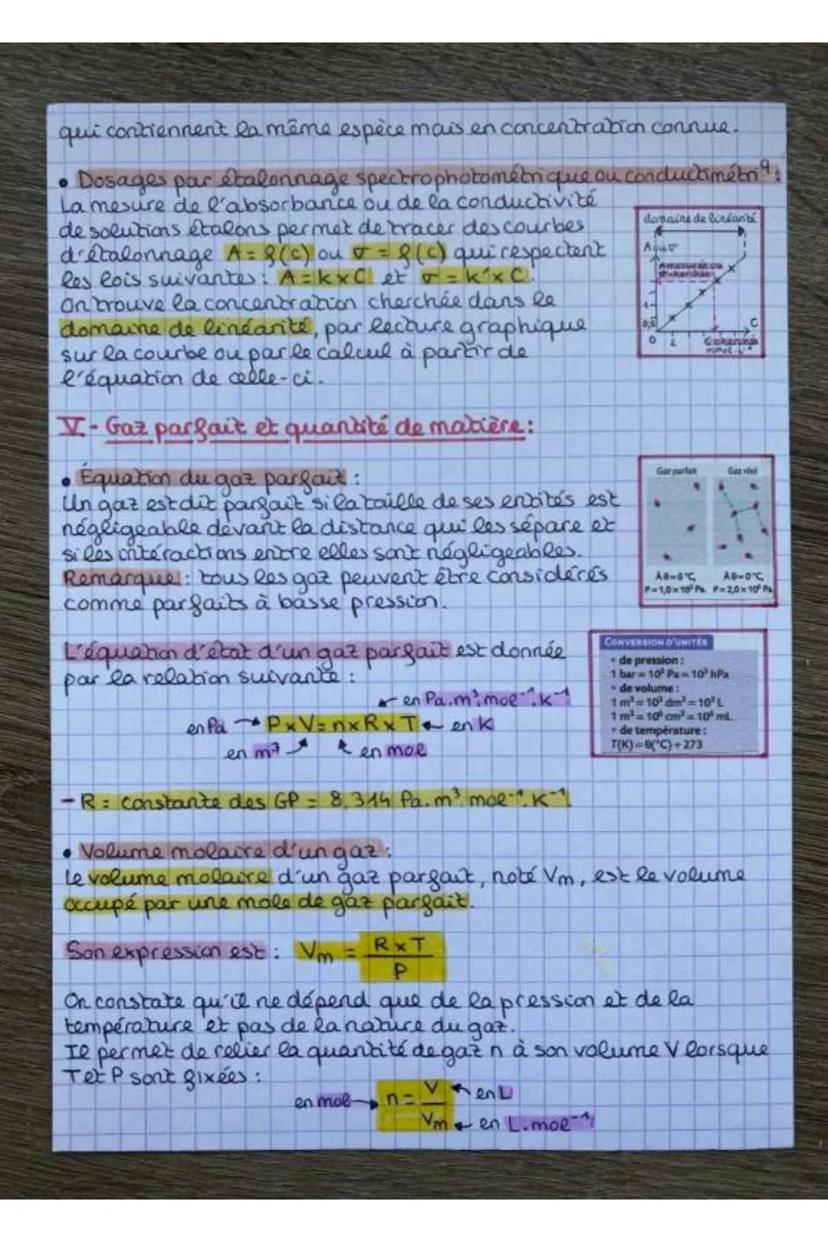 qui contiennent la même espèce mais en concentration connue.
• Dosages par étalonnage spectrophotométrique ou conductimétriq :
La mesure de l'absorbance ou de la conductivité
de solutions étalons permet de tracer des courbes
d'étalonnage A = f(c) ou σ = f(c) qui respectent
les lois suivantes : A = k x C et σ = k' x C.
On trouve la concentration cherchée dans le
domaine de linéarité, par lecture graphique
sur la courbe ou par le calcul à partir de
l'équation de celle-ci.
domaine de linéarité
A ou σ
A mesurée ou
σ cherchée
1
0,5
0 1
C
C cherchée
mmol.L⁻¹
V - Gaz parfait et quantité de matière :
• Équation du gaz parfait :
Un gaz est dit parfait si la taille de ses entités est
négligeable devant la distance qui les sépare et
si les intéractions entre elles sont négligeables.
Remarque : tous les gaz peuvent être considérés
comme parfaits à basse pression.
Gaz parfait Gaz réel
À θ=0°C, À θ=0°C,
P=1,0×10⁵ Pa P=2,0×10⁶ Pa
L'équation d'état d'un gaz parfait est donnée
par la relation suivante :
en Pa.m³.mol⁻¹.K⁻¹
en Pa → P x V = n x R x T ← en K
en m³ en mol
CONVERSION D'UNITÉS
• de pression :
1 bar = 10⁵ Pa = 10³ hPa
• de volume :
1 m³ = 10³ dm³ = 10³ L
1 m³ = 10⁶ cm³ = 10⁶ mL
• de température :
T(K) = θ(°C) + 273
- R = constante des GP = 8,314 Pa.m³.mol⁻¹.K⁻¹
• Volume molaire d'un gaz :
Le volume molaire d'un gaz parfait, noté Vm, est le volume
occupé par une mole de gaz parfait.
Son expression est : Vm = R x T
P
On constate qu'il ne dépend que de la pression et de la
température et pas de la nature du gaz.
Il permet de relier la quantité de gaz n à son volume V lorsque
T et P sont fixées :
en mol → n = V ← en L
Vm ← en L.mol⁻¹